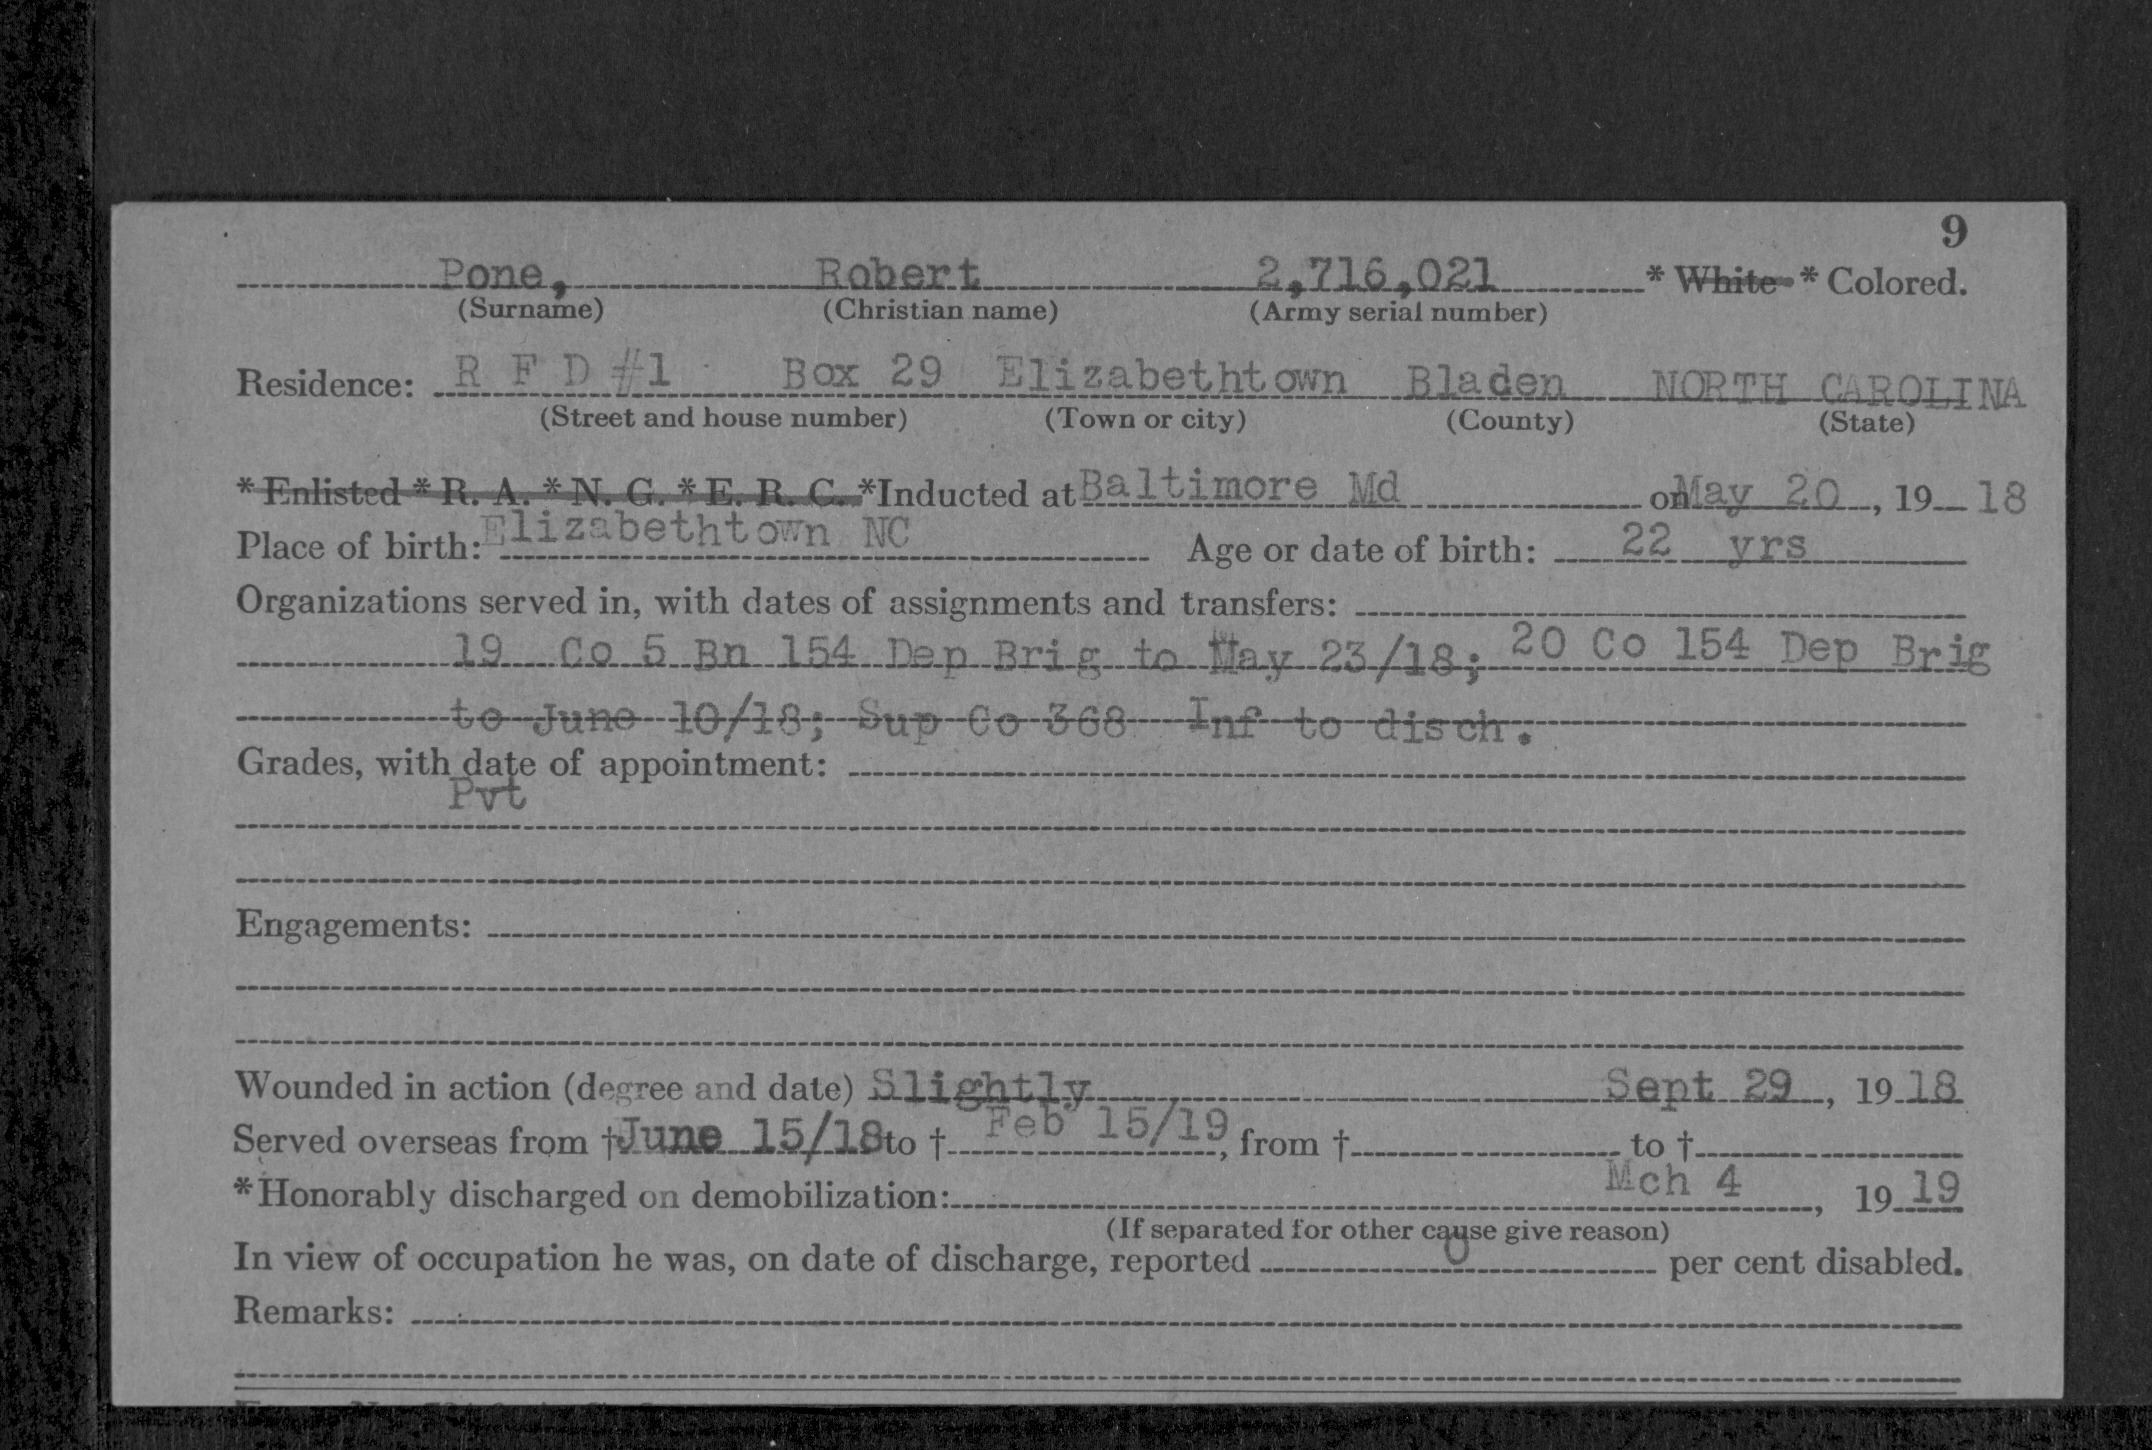 9
Pone, Robert 2,716,021 * White * Colored.
(Surname) (Christian name) (Army serial number)
Residence: R F D #1 Box 29 Elizabethtown Bladen NORTH CAROLINA
(Street and house number) (Town or city) (County) (State)
* Enlisted * R. A. * N. G. * E. R. C. *Inducted at Baltimore Md on May 20, 19 18
Place of birth: Elizabethtown NC Age or date of birth: 22 yrs
Organizations served in, with dates of assignments and transfers:
19 Co 5 Bn 154 Dep Brig to May 23/18; 20 Co 154 Dep Brig
to June 10/18; Sup Co 368 Inf to disch.
Grades, with date of appointment:
Pvt
Engagements:
Wounded in action (degree and date) Slightly Sept 29, 19 18
Served overseas from † June 15/18 to † Feb 15/19, from † to †
*Honorably discharged on demobilization: Mch 4, 19 19
(If separated for other cause give reason)
In view of occupation he was, on date of discharge, reported 0 per cent disabled.
Remarks: